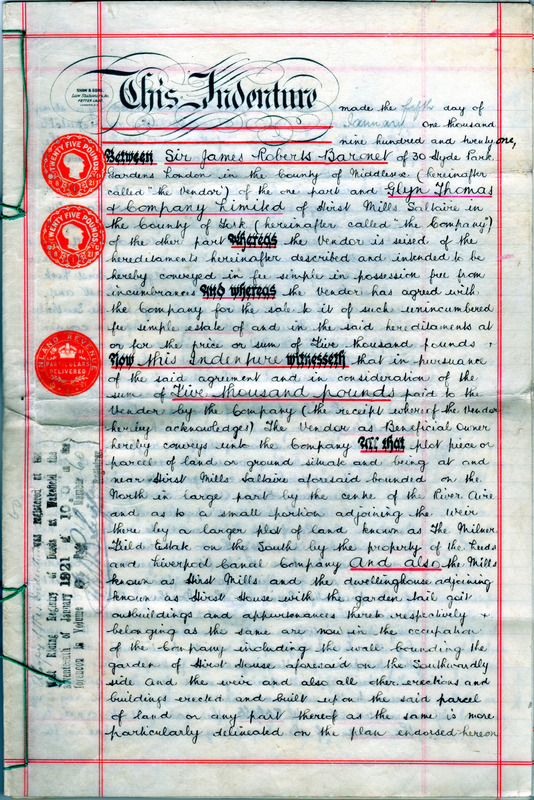 SHAW & SONS,
Law Stationers &c.
FETTER LANE
This Indenture
made the fifth day of
January One thousand
nine hundred and twenty one,
Between Sir James Roberts Baronet of 30 Hyde Park
Gardens London in the County of Middlesex (hereinafter
called "the Vendor") of the one part and Glyn Thomas
& Company Limited of Hirst Mills Saltaire in
the County of York (hereinafter called "the Company")
of the other part Whereas the Vendor is seised of the
hereditaments hereinafter described and intended to be
hereby conveyed in fee simple in possession free from
incumbrances And whereas the Vendor has agreed with
the Company for the sale to it of such unincumbered
fee simple estate of and in the said hereditaments at
or for the price or sum of Five thousand pounds
Now this Indenture witnesseth that in pursuance
of the said agreement and in consideration of the
sum of Five thousand pounds paid to the
Vendor by the Company (the receipt whereof the Vendor
hereby acknowledges) The Vendor as Beneficial Owner
hereby conveys unto the Company All that plot piece or
parcel of land or ground situate and being at and
near Hirst Mills Saltaire aforesaid bounded on the
North in large part by the centre of the River Aire
and as to a small portion adjoining the weir
there by a larger plot of land known as The Milner
Field Estate on the South by the property of the Leeds
and Liverpool Canal Company And also the Mills
known as Hirst Mills and the dwellinghouse adjoining
known as Hirst House with the garden tail goit
outbuildings and appurtenances thereto respectively
belonging as the same are now in the occupation
of the Company including the wall bounding the
garden of Hirst House aforesaid on the Southwardly
side And the weir and also all other erections and
buildings erected and built upon the said parcel
of land or any part thereof as the same is more
particularly delineated on the plan endorsed hereon
TWENTY FIVE POUNDS
TWENTY FIVE POUNDS
INLAND REVENUE
PARTICULARS
DELIVERED
was registered at the
West Riding Registry of Deeds at Wakefield the
of January 1921 at 10
in Volume